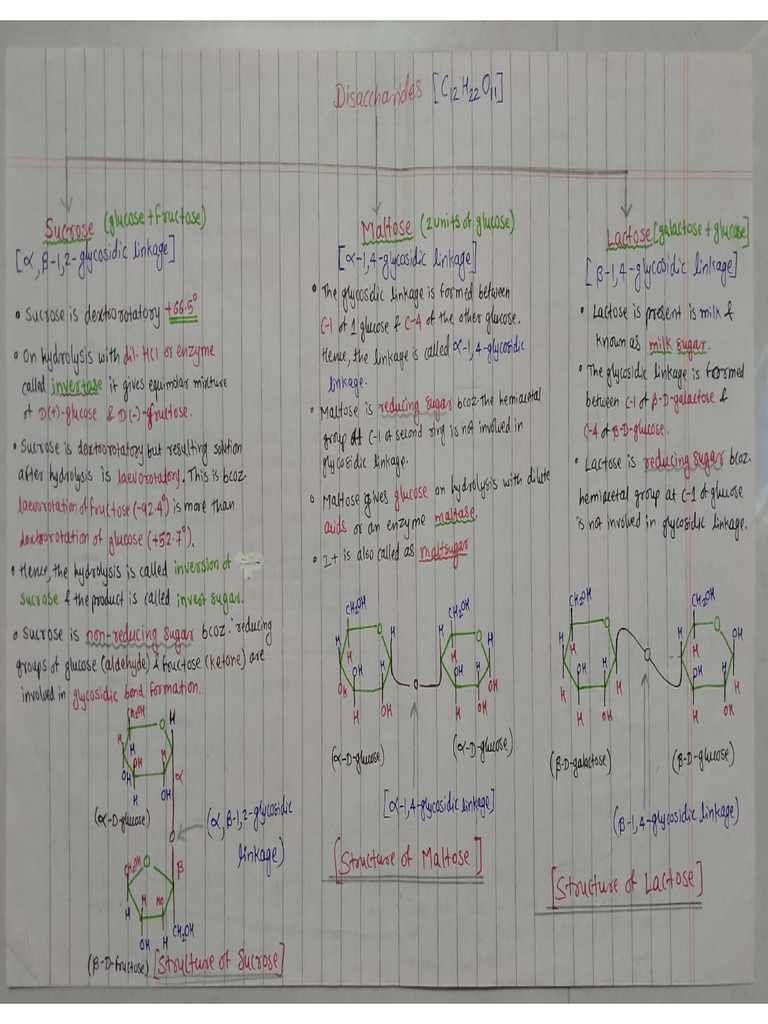 Disaccharides [C12H22O11]
Sucrose (glucose + fructose)
[α, β-1,2-glycosidic linkage]
• Sucrose is dextrorotatory +66.5°
• On hydrolysis with dil. HCl or enzyme
called invertase it gives equimolar mixture
of D(+)-glucose & D(-)-fructose.
• Sucrose is dextrorotatory but resulting solution
after hydrolysis is laevorotatory. This is bcoz
laevorotation of fructose (-92.4°) is more than
dextrorotation of glucose (+52.7°).
• Hence, the hydrolysis is called inversion of
sucrose & the product is called invert sugar.
• Sucrose is non-reducing sugar bcoz. reducing
groups of glucose (aldehyde) & fructose (ketone) are
involved in glycosidic bond formation.
CH2OH
O
H
H
H
H
OH
OH
H
OH
α
(α-D-glucose)
O
(α, β-1,2-glycosidic
linkage)
CH2OH
O
β
H
H
HO
OH
H
CH2OH
(β-D-fructose)
[Structure of Sucrose]
Maltose (2 units of glucose)
[α-1,4-glycosidic linkage]
• The glycosidic linkage is formed between
C-1 of 1 glucose & C-4 of the other glucose.
Hence, the linkage is called α-1,4-glycosidic
linkage.
• Maltose is reducing sugar bcoz the hemiacetal
group at C-1 of second ring is not involved in
glycosidic linkage.
• Maltose gives glucose on hydrolysis with dilute
acids or an enzyme maltase.
• It is also called as maltsugar
CH2OH
CH2OH
O
O
H
H
H
H
H
H
OH
H
OH
H
OH
OH
H
OH
H
OH
O
(α-D-glucose)
(α-D-glucose)
[α-1,4-glycosidic linkage]
[Structure of Maltose]
Lactose [galactose + glucose]
[β-1,4-glycosidic linkage]
• Lactose is present is milk &
known as milk sugar.
• The glycosidic linkage is formed
between C-1 of β-D-galactose &
C-4 of β-D-glucose.
• Lactose is reducing sugar bcoz.
hemiacetal group at C-1 of glucose
is not involved in glycosidic linkage.
CH2OH
CH2OH
O
O
OH
H
H
H
H
OH
H
OH
H
H
OH
H
H
OH
O
(β-D-galactose)
(β-D-glucose)
(β-1,4-glycosidic linkage)
[Structure of Lactose]